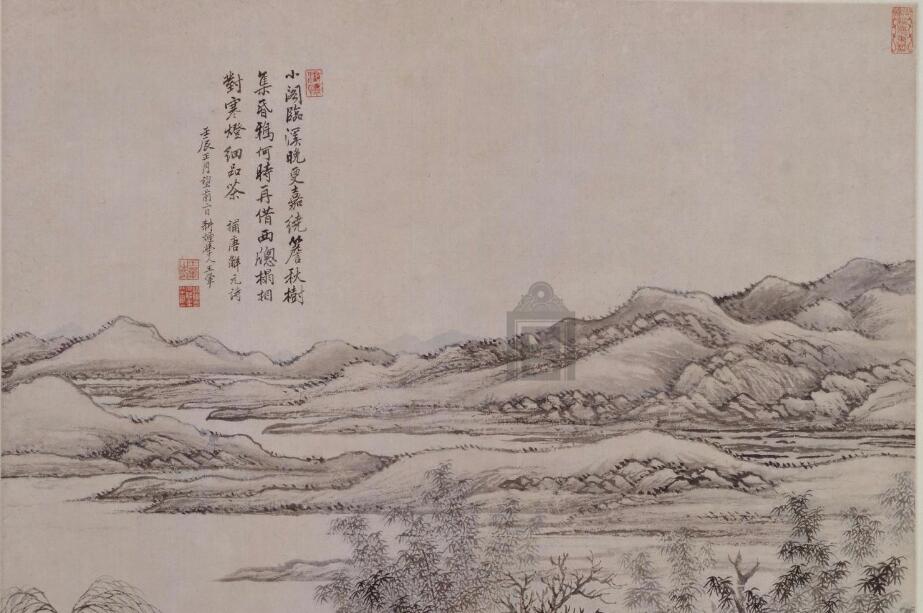 小閣臨溪晚更嘉繞簷秋樹
集昏鴉何時再借西牕榻相
對寒燈細品茶 補唐解元詩
壬辰正月望前日耕煙人王翬